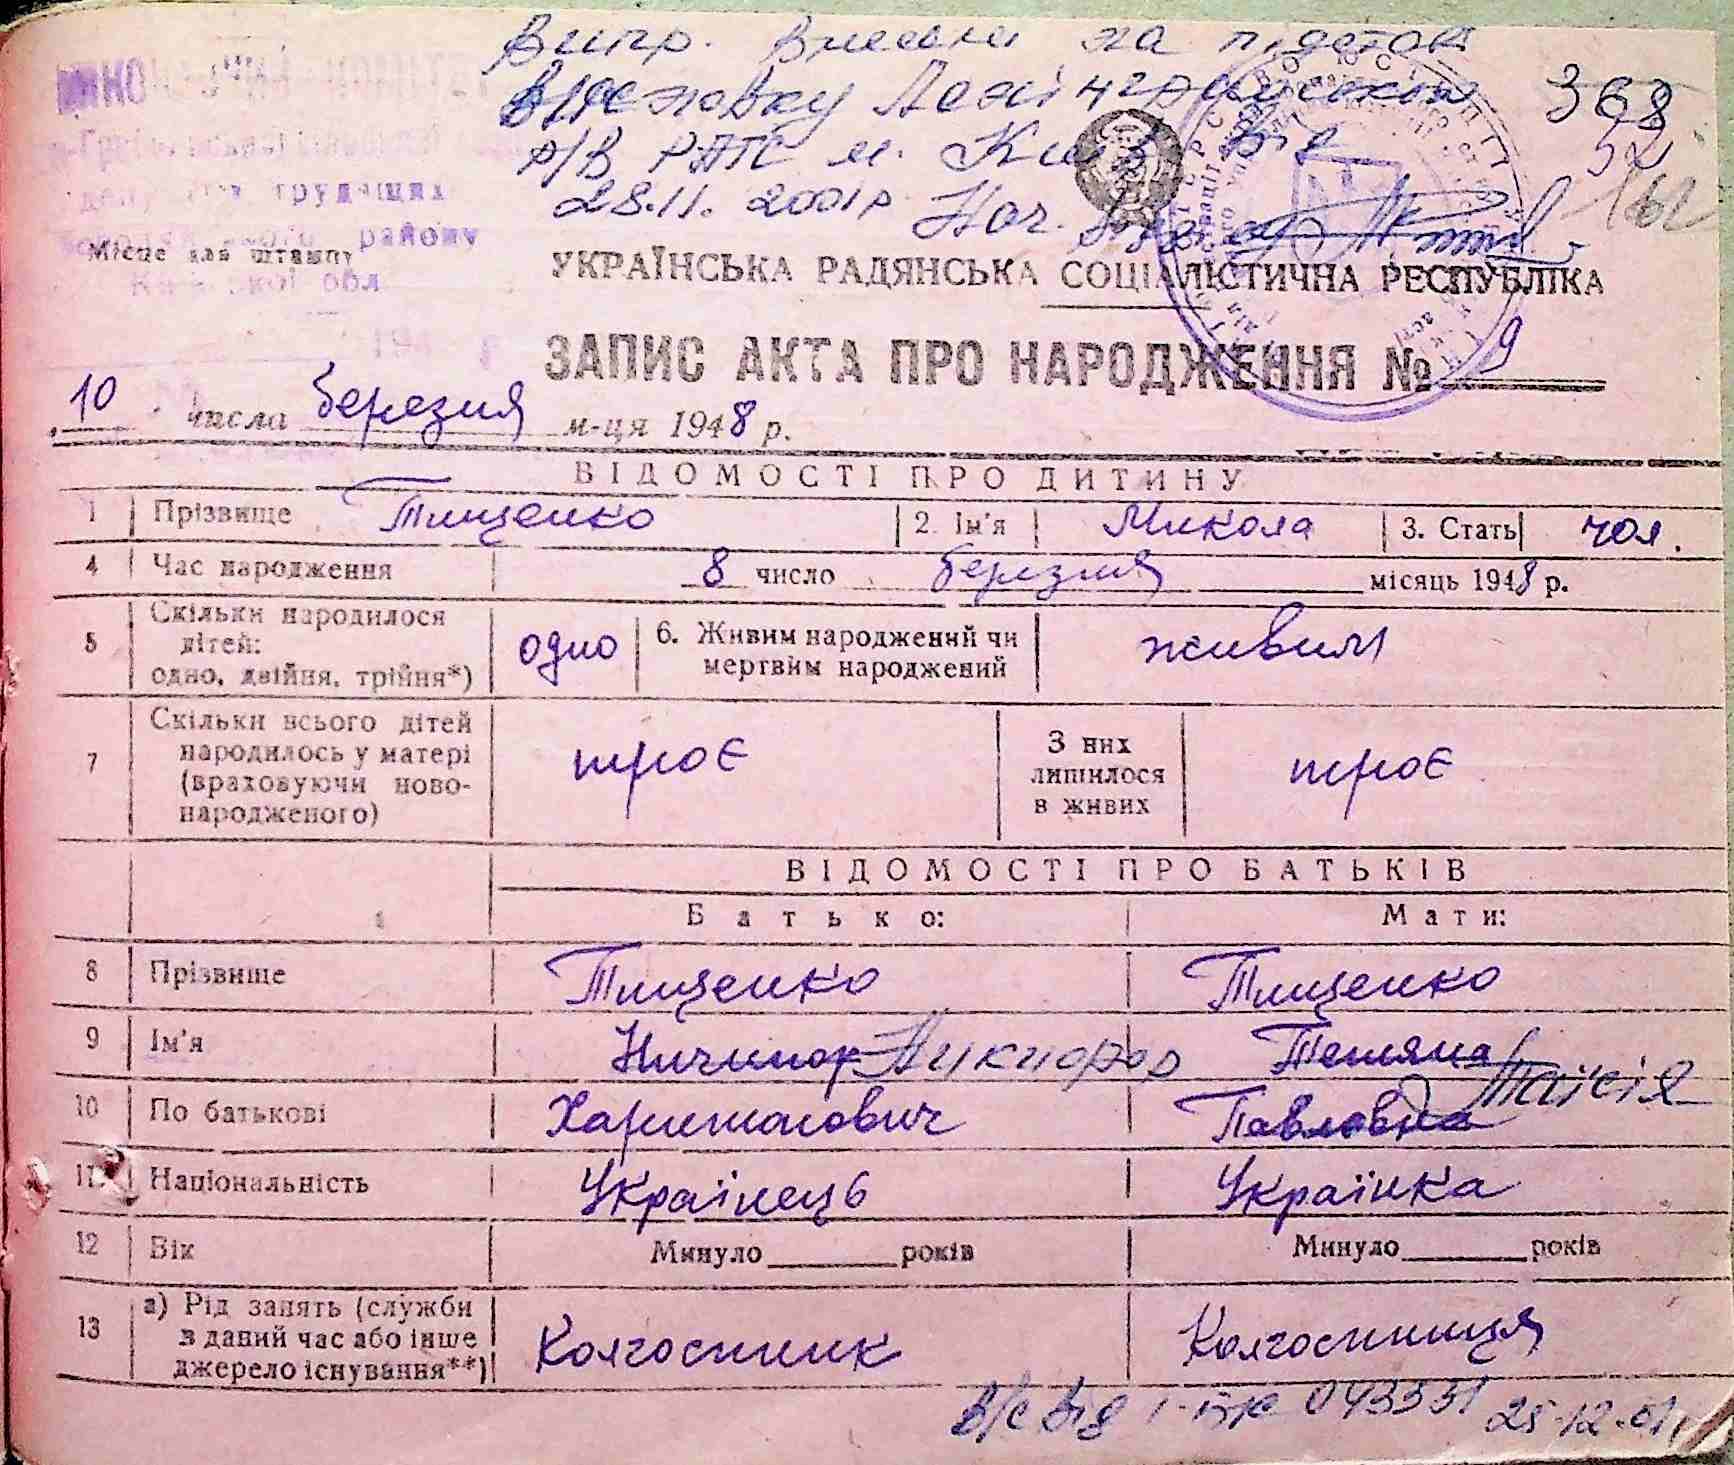 Випр. внесені на підставі
висновку Ленінградського
р/в РАГС м. Київ від
28.11.2001р Нач.
368
52
депутатів трудящих
району
Київської обл
Місце для штампу
УКРАЇНСЬКА РАДЯНСЬКА СОЦІАЛІСТИЧНА РЕСПУБЛІКА
ЗАПИС АКТА ПРО НАРОДЖЕННЯ № 9
10 числа березня м-ця 1948 р.
ВІДОМОСТІ ПРО ДИТИНУ
1 Прізвище Тищенко 2. Ім'я Микола 3. Стать чол.
4 Час народження 8 число березня місяць 1948 р.
5 Скільки народилося
дітей:
одно, двійня, трійня*) одно 6. Живим народжений чи
мертвим народжений живим
7 Скільки всього дітей
народилось у матері
(враховуючи ново-
народженого) троє З них
лишилося
в живих троє
ВІДОМОСТІ ПРО БАТЬКІВ
Батько: Мати:
8 Прізвище Тищенко Тищенко
9 Ім'я Ничипор Никифор Тетяна Таїсія
10 По батькові Харитонович Павловна
11 Національність Українець Українка
12 Вік Минуло ______ років Минуло ______ років
13 а) Рід занять (служби
в даний час або інше
джерело існування**) Колгоспник Колгоспниця
в/с від І-БК 043331 25.12.01р